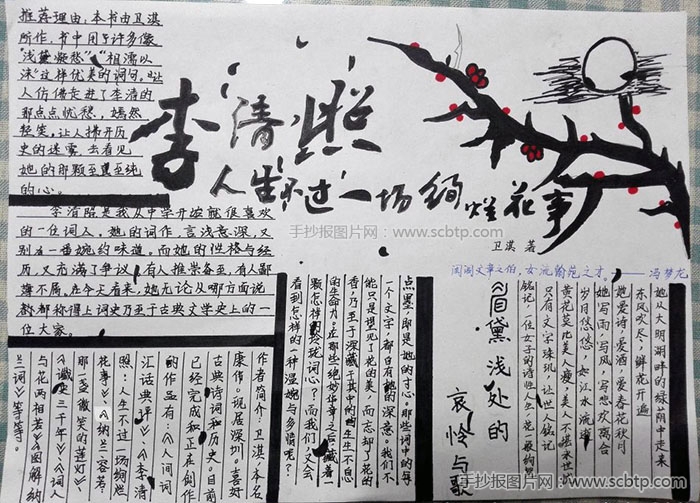 推荐理由:本书由卫淇
所作,书中用了许多像
"浅颦凝愁""相濡以
沫"这样优美的词句。让
人仿佛走进了李清的
那点点忧愁,嫣然
轻笑,让人拂开历
史的迷雾,去看见
她的那颗至真至纯
的心。
李清照是我从中学开始就很喜欢
的一位词人。她的词作,言浅意深,又
别有一番婉约味道。而她的性格与经
历,又充满了争议,有人推崇备至,有人鄙
薄不屑。在今天看来,她无论从哪方面说
都称得上词史乃至于古典文学史上的一
位大家。
李清照
人生不过一场绚烂花事
卫淇 著
手抄报图片网:www.scbtp.com
闺阁文章之伯,女流翰苑之才。——冯梦龙
她从大明湖畔的绿荫中走来
东风吹尽,鲜花开遍
她爱诗,爱酒,爱春花秋月
她写雨,写风,写悲欢离合
岁月悠悠,如江水流逝
黄花莫比美人瘦,美人不堪永世
只有文字珠玑,让世人铭记
铭记,一位女子的诗性人生
眉黛浅处的
哀怜与歌
点墨,即是她的寸心。那些词中的每
一个文字,都自有她的深意。我们不
能只是望见了花的美,而忘却了花的
香,乃至于深藏于其中的生生不息
的生命力。在那些绝妙华章之后,藏着一
颗怎样的玲珑词心?而我们,又会
看到怎样的一种温婉与多情呢?
作者简介:卫淇,本名
康作,现居深圳,喜好
古典诗词和历史。目前
已经完成和正在创作
的作品有《人间词
汇话典评》《李清
照:人生不过一场绚烂
花事》《纳兰容若:
那一盏微笑的莲灯》
《谶史三千年》《人
与花两相若》《图解纳
兰词》等等。
手抄报图片网:www.scbtp.com